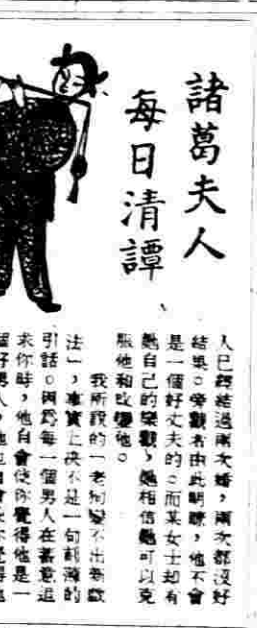 諸葛夫人
每日清譚
人已經結過兩次婚，兩次都沒好
結果。旁觀者由此明瞭，他不會
是一個好丈夫的。而某女士却有
她自己的樂觀，她相信她可以克
服他和改變他。
我所說的「老狗變不出新戲
法」，事實上决不是一句刻薄的
引話。因爲每一個男人在蓄意追
求你時，他自會使你覺得他是一